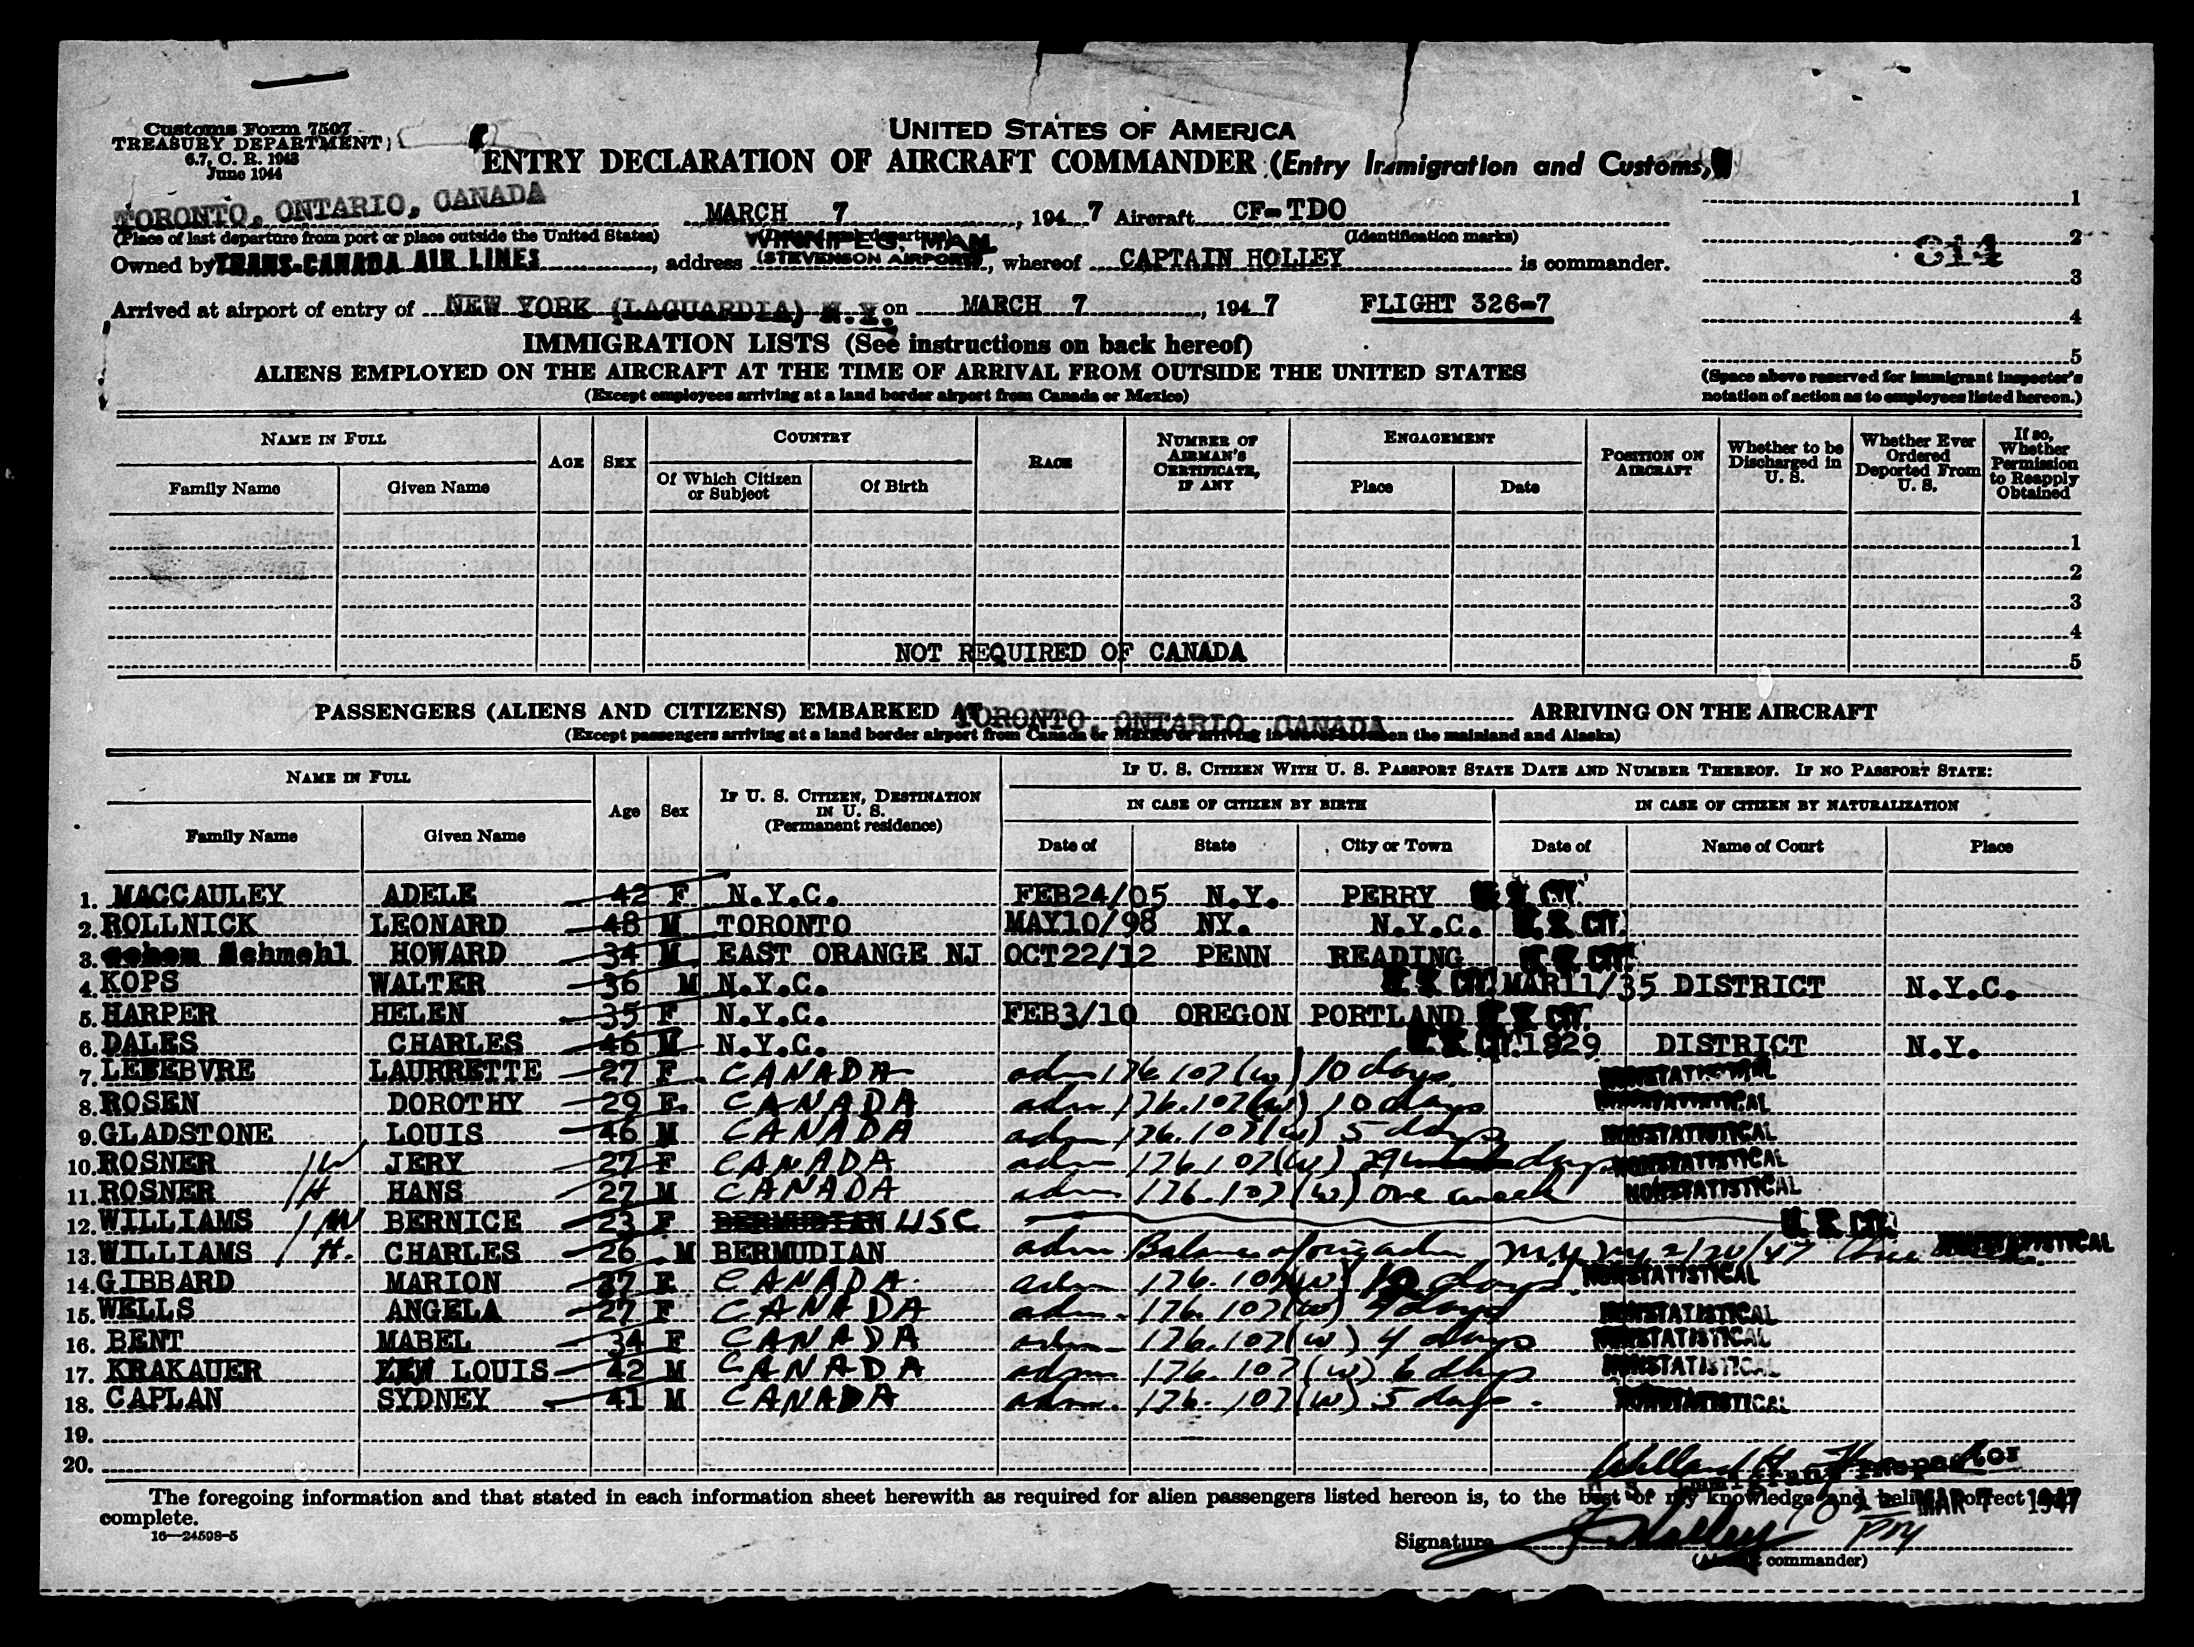 Customs Form 7507
TREASURY DEPARTMENT
6.7, C. R. 1943
June 1944
UNITED STATES OF AMERICA
ENTRY DECLARATION OF AIRCRAFT COMMANDER (Entry Immigration and Customs)
TORONTO, ONTARIO, CANADA MARCH 7, 1947 Aircraft CF-TDO
(Place of last departure from port or place outside the United States) (Identification marks)
WINNIPEG, MAN.
Owned by TRANS-CANADA AIR LINES, address (STEVENSON AIRPORT), whereof CAPTAIN HOLLEY is commander.
Arrived at airport of entry of NEW YORK (LAGUARDIA) N.Y. on MARCH 7, 1947 FLIGHT 326-7
1
2 314
3
4
5
(Space above reserved for immigrant inspector's
notation of action as to employees listed hereon.)
IMMIGRATION LISTS (See instructions on back hereof)
ALIENS EMPLOYED ON THE AIRCRAFT AT THE TIME OF ARRIVAL FROM OUTSIDE THE UNITED STATES
(Except employees arriving at a land border airport from Canada or Mexico)
NAME IN FULL
Family Name Given Name
AGE SEX
COUNTRY
Of Which Citizen or Subject Of Birth
RACE
NUMBER OF AIRMAN'S CERTIFICATE, IF ANY
ENGAGEMENT
Place Date
POSITION ON AIRCRAFT
Whether to be Discharged in U. S.
Whether Ever Ordered Deported From U. S.
If so, Whether Permission to Reapply Obtained
1
2
3
4
NOT REQUIRED OF CANADA 5
PASSENGERS (ALIENS AND CITIZENS) EMBARKED AT TORONTO ONTARIO CANADA ARRIVING ON THE AIRCRAFT
(Except passengers arriving at a land border airport from Canada or Mexico or arriving in travel between the mainland and Alaska)
NAME IN FULL
Family Name Given Name
Age Sex
IF U. S. CITIZEN, DESTINATION IN U. S. (Permanent residence)
IF U. S. CITIZEN WITH U. S. PASSPORT STATE DATE AND NUMBER THEREOF. IF NO PASSPORT STATE:
IN CASE OF CITIZEN BY BIRTH IN CASE OF CITIZEN BY NATURALIZATION
Date of State City or Town Date of Name of Court Place
1. MACCAULEY ADELE 42 F N.Y.C. FEB24/05 N.Y. PERRY U. S. CIT.
2. ROLLNICK LEONARD 48 M TORONTO MAY10/98 NY. N.Y.C. U. S. CIT.
3. Schmehl HOWARD 34 M EAST ORANGE NJ OCT22/12 PENN READING U. S. CIT.
4. KOPS WALTER 36 M N.Y.C. U. S. CIT. MAR11/35 DISTRICT N.Y.C.
5. HARPER HELEN 35 F N.Y.C. FEB3/10 OREGON PORTLAND U. S. CIT.
6. DALES CHARLES 46 M N.Y.C. U. S. CIT. 1929 DISTRICT N.Y.
7. LEFEBVRE LAURRETTE 27 F CANADA adm 176.107(w) 10 days NONSTATISTICAL
8. ROSEN DOROTHY 29 F. CANADA adm 176.107(w) 10 days NONSTATISTICAL
9. GLADSTONE LOUIS 46 M CANADA adm 176.107(w) 5 days NONSTATISTICAL
10. ROSNER /W JERY 27 F CANADA adm 176.107(w) 29 days NONSTATISTICAL
11. ROSNER /H HANS 27 M CANADA adm 176.107(w) one week NONSTATISTICAL
12. WILLIAMS /W BERNICE 23 F BERMUDIAN USC U. S. CIT.
13. WILLIAMS /H. CHARLES 26 M BERMUDIAN adm Balance of orig adm N.Y. NY 2/20/47 NONSTATISTICAL
14. GIBBARD MARION 37 F CANADA adm 176.107(w) days NONSTATISTICAL
15. WELLS ANGELA 27 F CANADA adm. 176.107(w) days NONSTATISTICAL
16. BENT MABEL 34 F CANADA adm 176.107(w) 4 days NONSTATISTICAL
17. KRAKAUER LOUIS 42 M CANADA adm 176.107(w) 6 days NONSTATISTICAL
18. CAPLAN SYDNEY 41 M CANADA adm. 176.107(w) 5 days. NONSTATISTICAL
19.
20.
U. S. Immigrant Inspector
The foregoing information and that stated in each information sheet herewith as required for alien passengers listed hereon is, to the best of my knowledge and belief, correct and
complete. MAR 7 1947
16—24598-5
Signature Holley PM
commander)